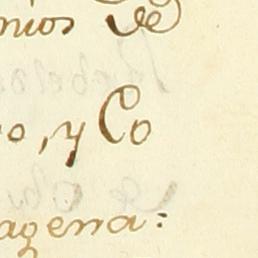 nios de
o, y Co
agena: